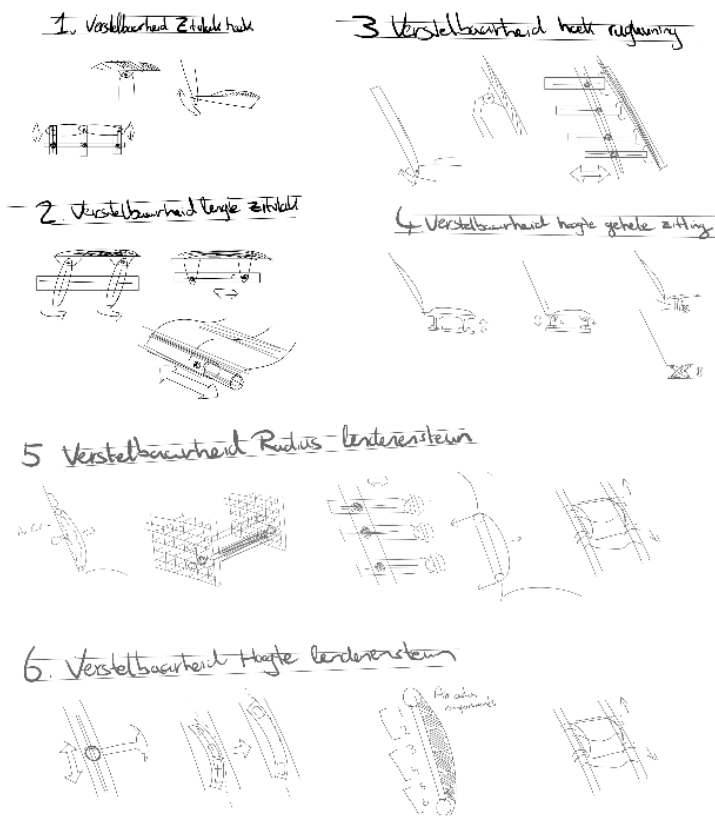 1. Verstelbaarheid Zitvlak hoek
3 Verstelbaarheid hoek rugleuning
2. Verstelbaarheid lengte zitvlak
4 Verstelbaarheid hoogte gehele zitting
5 Verstelbaarheid Radius lendensteun
6. Verstelbaarheid Hoogte lendensteun
compartments
1
2
3
4
5
6